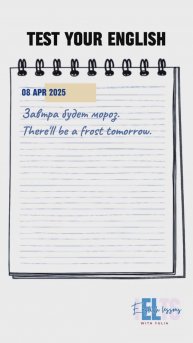 TEST YOUR ENGLISH
08 APR 2025
Завтра будет мороз.
There'll be a frost tomorrow.
EL
English lessons
WITH YULIA